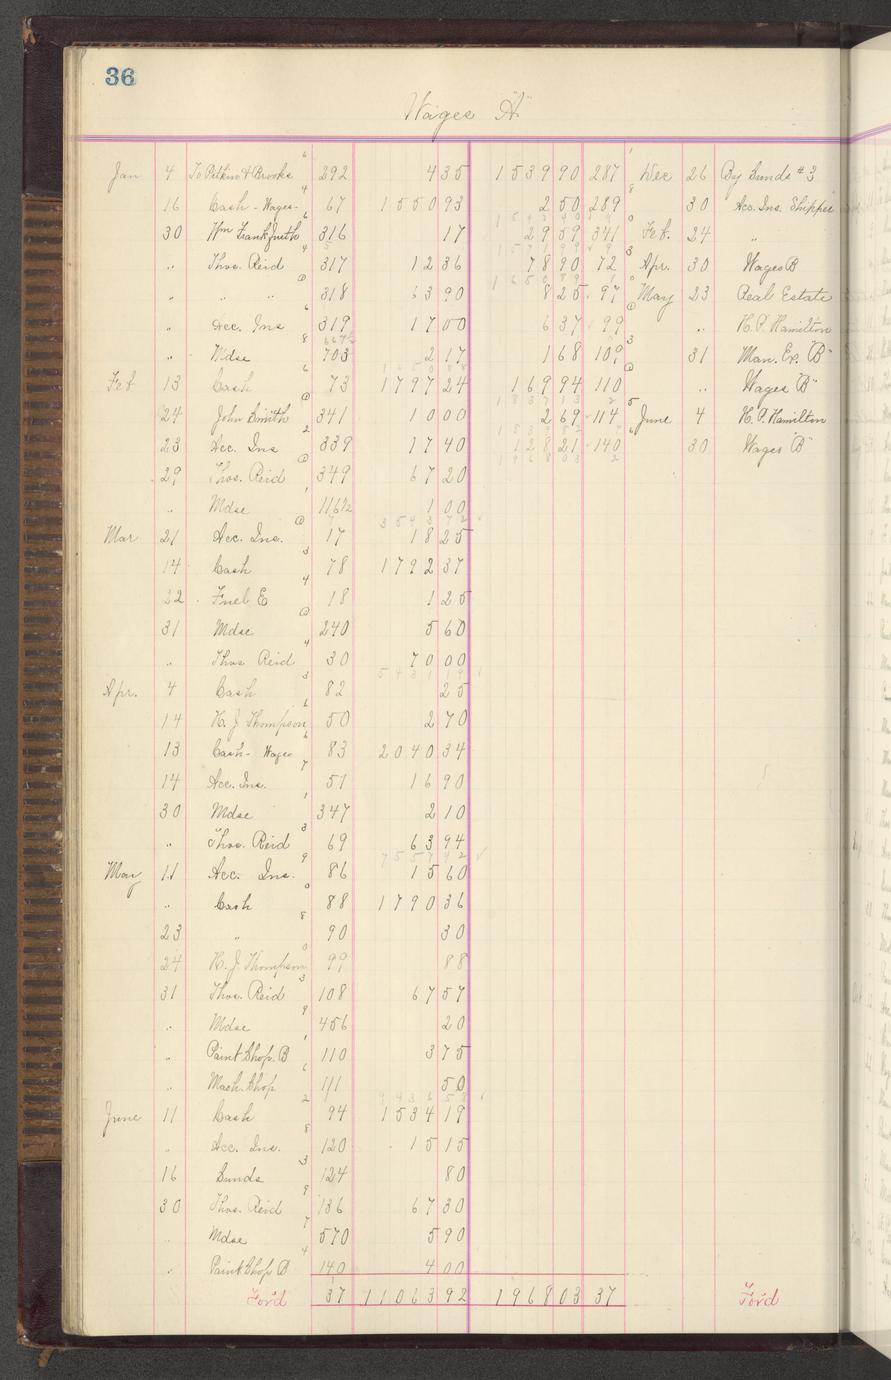 36
Wages "A"
Jan 4 To Pitkin & Brooks 292 4 35 1539 90 287 Dec 26 By Sunds #3
16 Cash - Wages - 67 1550 93 2 50 289 30 Acc. Ins. Shipper
30 Wm Frankfurth 316 17 29 59 341 Feb. 24 "
" Thos. Reid 317 12 36 78 90 72 Apr. 30 Wages B
" " " 318 63 90 8 25 97 May 23 Real Estate
" Acc. Ins 319 17 00 6 37 99 " H. P. Hamilton
" Mdse 703 2 17 1 68 109 31 Man. Ex. "B"
Feb 13 Cash 73 1797 24 169 94 110 " Wages "B"
24 John Smith 341 10 00 2 69 114 June 4 H. P. Hamilton
23 Acc. Ins 339 17 40 128 21 140 30 Wages "B"
29 Thos. Reid 349 67 20
" Mdse 116½ 1 00
3543 72
Mar 21 Acc. Ins. 17 18 25
14 Cash 78 1792 37
22 Fuel E 18 1 25
31 Mdse 240 5 60
" Thos Reid 30 70 00
5431 19
Apr. 4 Cash 82 25
14 H. J. Thompson 50 2 70
13 Cash - Wages 83 2040 34
14 Acc. Ins. 51 16 90
30 Mdse 347 2 10
" Thos. Reid 69 63 94
7557 42
May 11 Acc. Ins. 86 15 60
" Cash 88 1790 36
23 " 90 30
24 H. J. Thompson 99 88
31 Thos. Reid 108 67 57
" Mdse 456 20
" Paint Shop. B 110 3 75
" Mach. Shop 111 50
9436 58
June 11 Cash 94 1534 19
" Acc. Ins. 120 15 15
16 Sunds 124 80
30 Thos. Reid 136 67 30
" Mdse 570 5 90
" Paint Shop B 140 4 00
For'd 37 11063 92 1968 03 37 For'd